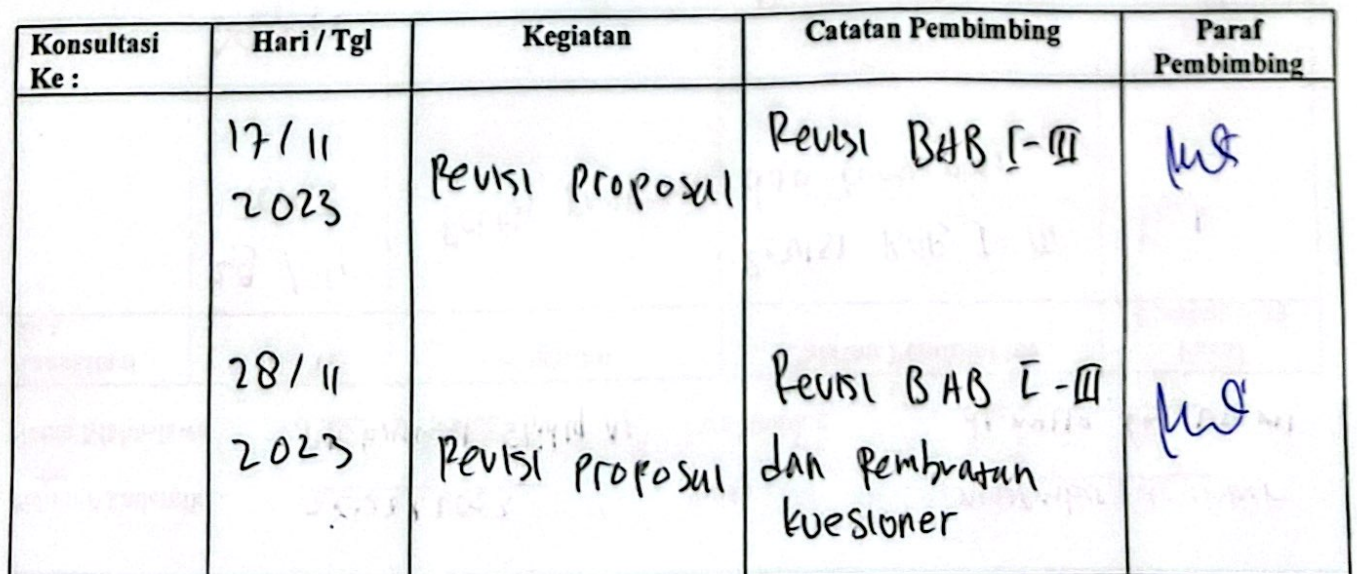 Konsultasi Ke :
Hari / Tgl
Kegiatan
Catatan Pembimbing
Paraf Pembimbing
17/11
2023
Revisi Proposal
Revisi BAB I-III
28/11
2023
Revisi Proposal
Revisi BAB I-III
dan Pembuatan
kuesioner